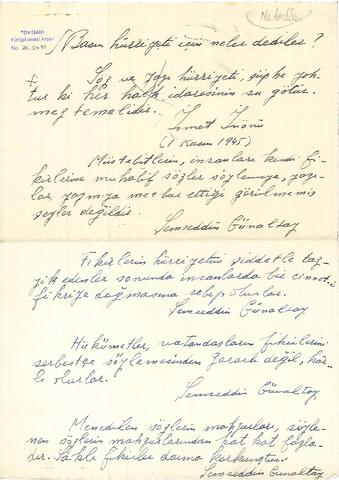 TDV İSAM
Kütüphanesi Arşivi
No 2E.2691
Nedediler
Basın hürriyeti için neler dediler ?
Söz ve yazı hürriyeti, şüphe yok-
tur ki her halk idaresinin su götür-
mez temelidir.
İsmet İnönü
(1 Kasım 1945)
Müstebitlerin, insanları kendi fi-
kirlerine muhalif sözler söylemeye, yazı-
lar yazmıya mecbur ettiği görülmemiş
şeyler değildir.
Şemseddin Günaltay
Fikirlerin hürriyetini şiddetle taz-
yik edenler sonunda insanlarda bir cinnet-i
fikriye doğmasına sebep olurlar.
Şemseddin Günaltay
Hükûmetler, vatandaşların fikirlerini
serbestçe söylemesinden zararlı değil, kâr-
lı olurlar.
Şemseddin Günaltay
Menedilen sözlerin mahzurları, söyle-
nen sözlerin mahzurlarından kat kat fazla-
dır. Saklı fikirler daima korkunçtur.
Şemseddin Günaltay